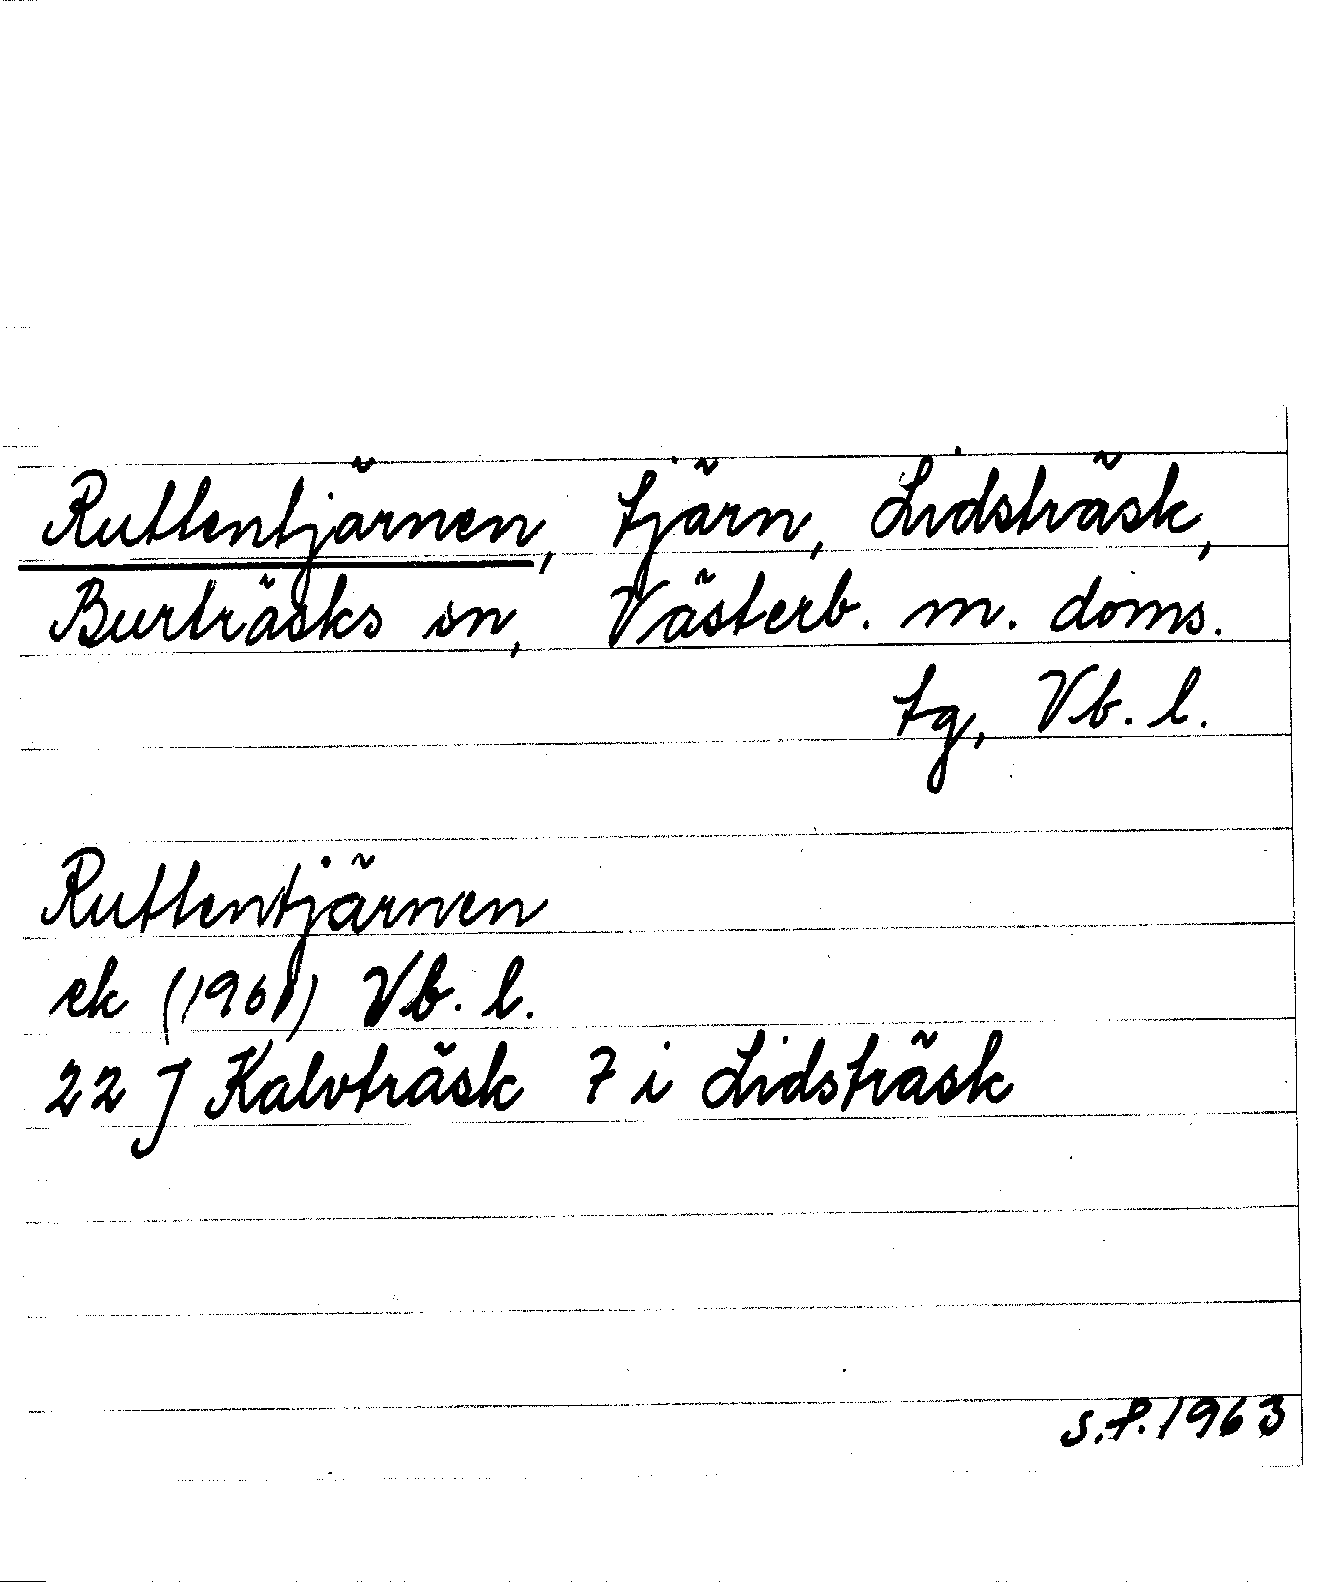 Ruttentjärnen, tjärn, Lidsträsk,
Burträsks sn, Västerb. m. doms.
tg, Vb. l.
Ruttentjärnen
ek (1961) Vb. l.
22 J Kalvträsk 7 i Lidsträsk
S.P. 1963